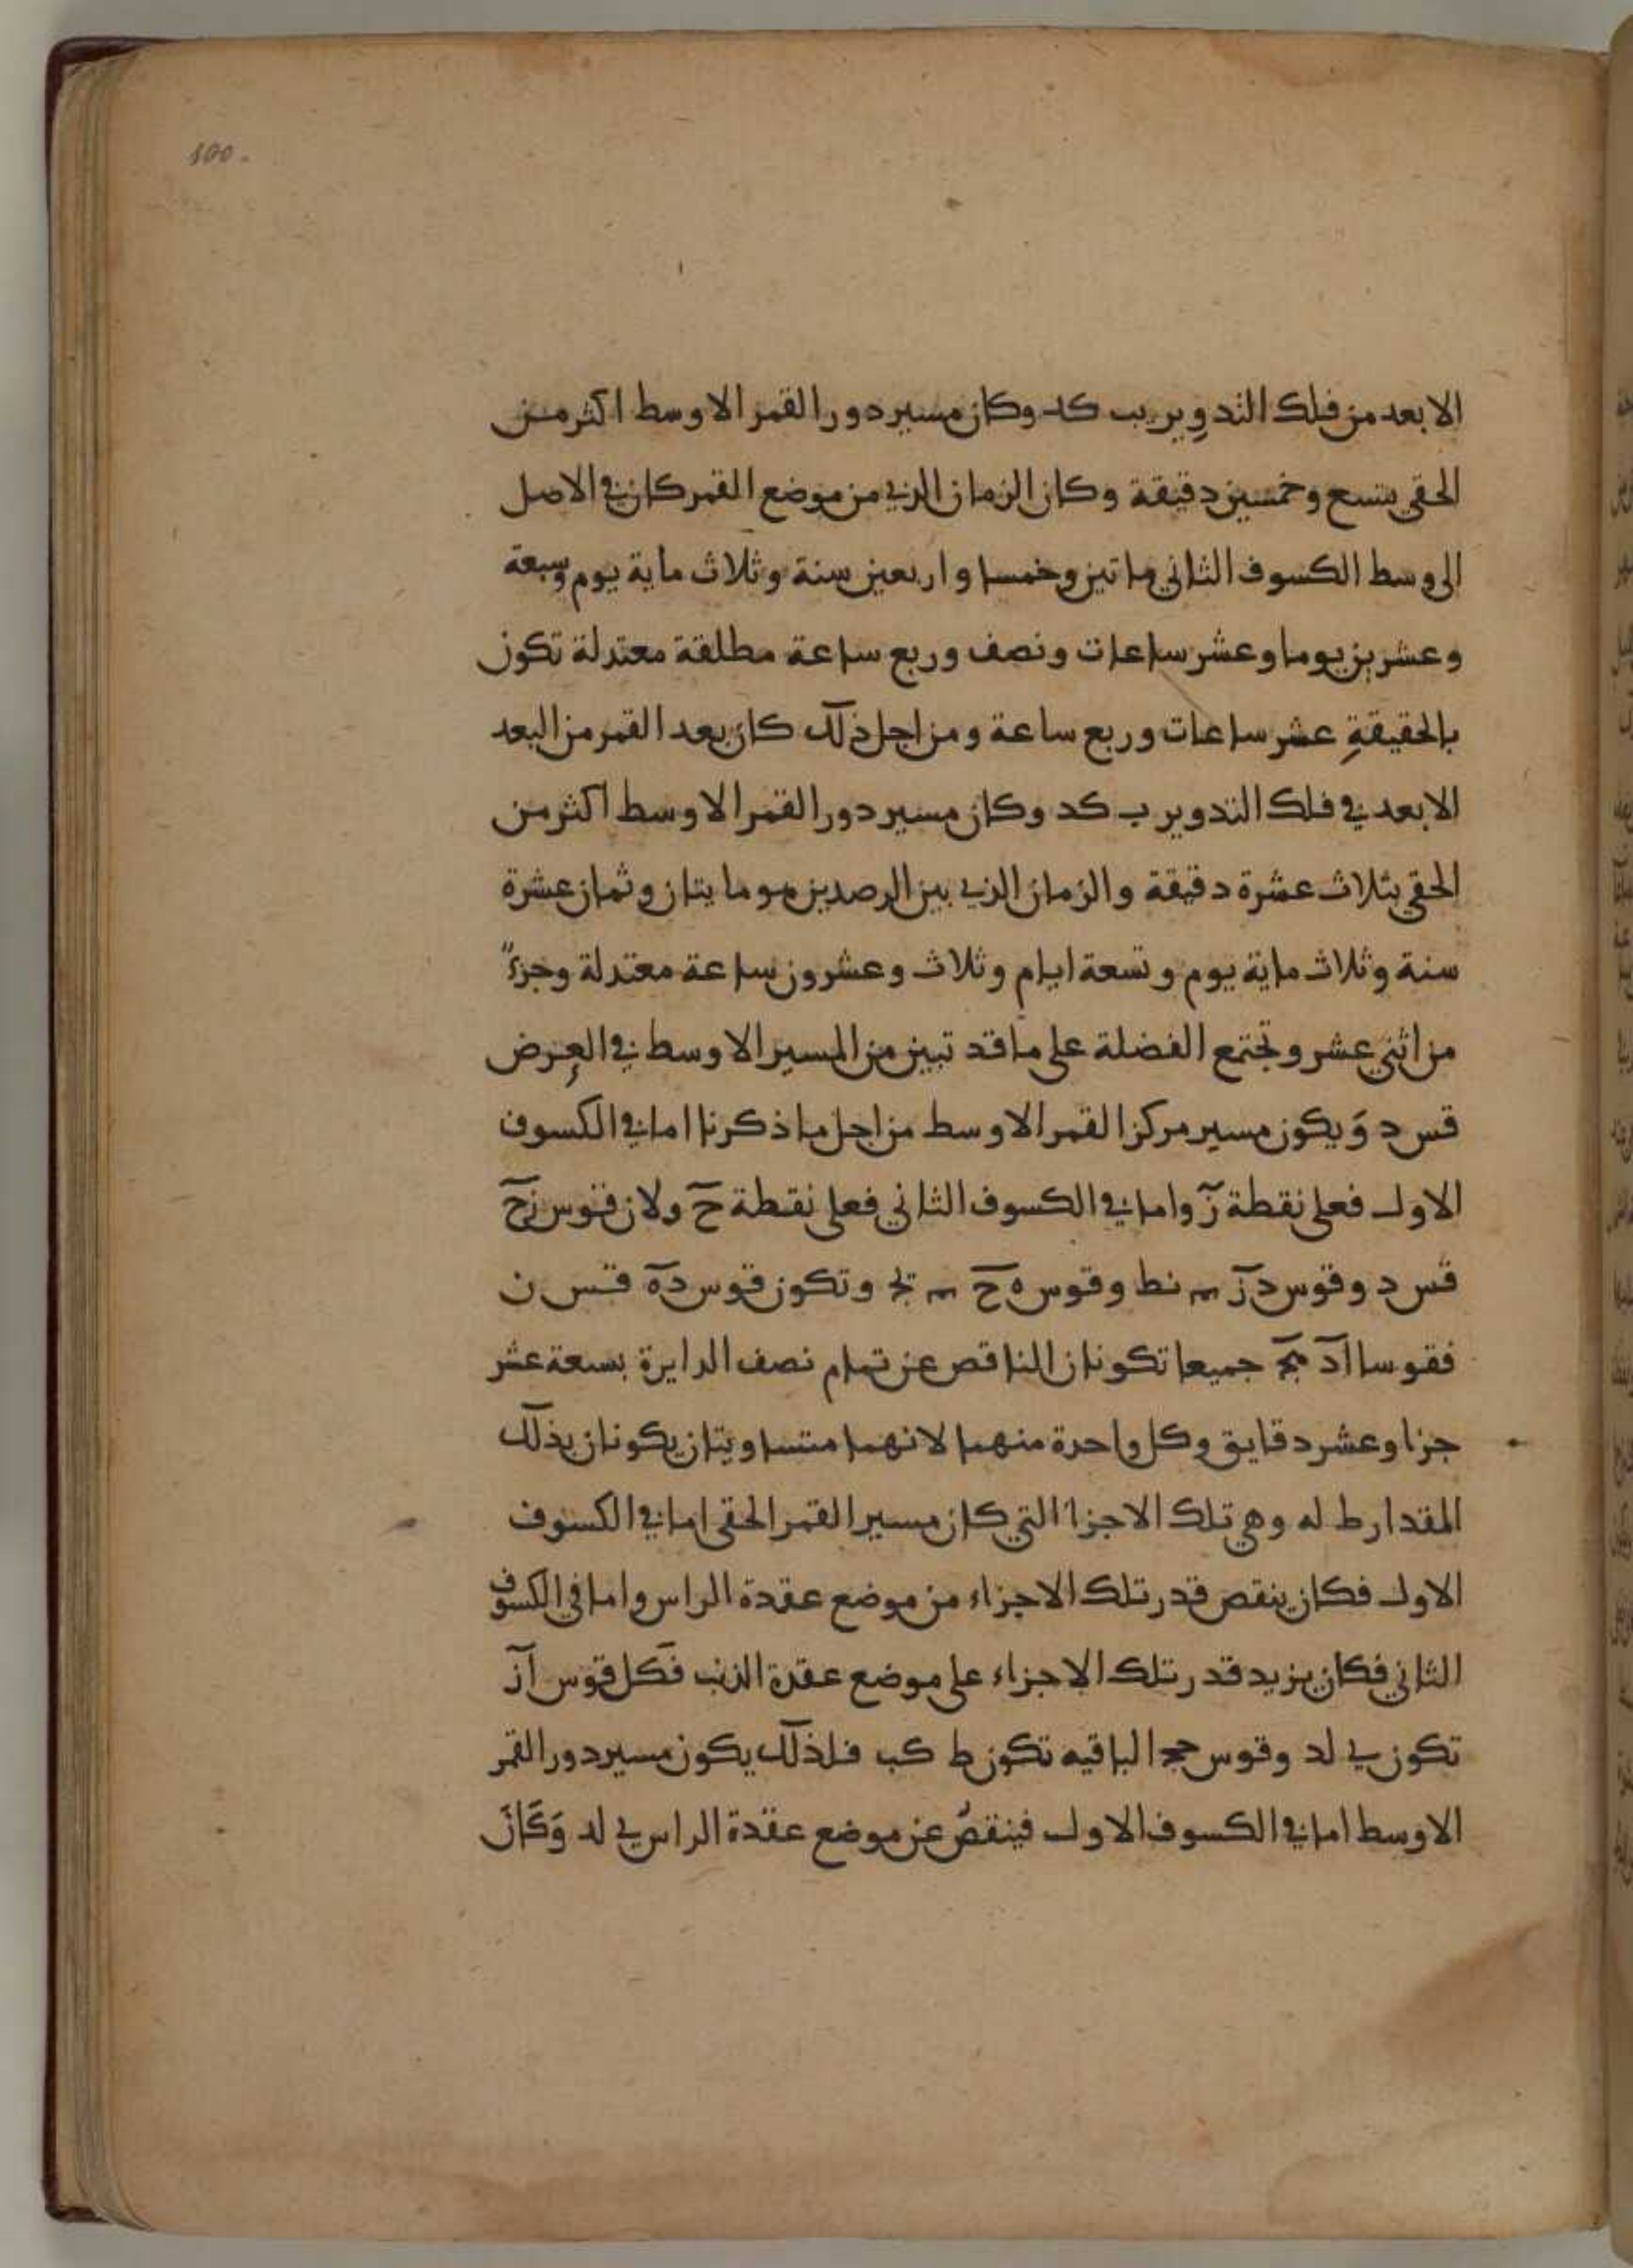 100.
الابعد من فلك التدوير يب كد وكان مسير دور القمر الاوسط اكثر من
الحقي بتسع وخمسين دقيقة وكان الزمان الذي من موضع القمر كان في الاصل
الى وسط الكسوف الثاني ماتين وخمسا واربعين سنة وثلاث ماية يوم وسبعة
وعشرين يوما وعشر ساعات ونصف وربع ساعة مطلقة معتدلة تكون
بالحقيقةِ عشر ساعات وربع ساعة ومن اجل ذلك كان بعد القمر من البعد
الابعد في فلك التدوير ب كد وكان مسير دور القمر الاوسط اكثر من
الحقي بثلاث عشرة دقيقة والزمان الذي بين الرصدين هو مايتان وثمان عشرة
سنة وثلاث ماية يوم وتسعة ايام وثلاث وعشرون ساعة معتدلة وجزءً
من اثني عشر وتجتمع الفضلة على ما قد تبين من المسير الاوسط في العرض
قس د وَيكون مسير مركز القمر الاوسط من اجل ما ذكرنا اما في الكسوف
الاول فعلى نقطة زَ واما في الكسوف الثاني فعلى نقطة حَ ولان قوس زح
قس د وقوس دز نط وقوس ه ح يج وتكون قوس ده قس ن
فقوسا اد هج جميعا تكونان الناقص عن تمام نصف الدايرة بسعة عشر
جزا وعشر دقايق وكل واحدة منهما لانهما متساويتان يكونان بذلك
المقدار ط له وهي تلك الاجزا التي كان مسير القمر الحقي اما في الكسوف
الاول فكان ينقص قدر تلك الاجزاء من موضع عقدة الراس واما في الكسوف
الثاني فكان يزيد قدر تلك الاجزاء على موضع عقدة الذنب فكل قوس از
تكون ي لد وقوس حج الباقيه تكون ط كب فلذلك يكون مسير دور القمر
الاوسط اما في الكسوف الاول فينقصُ عن موضع عقدة الراس ي لد وَكَانَ